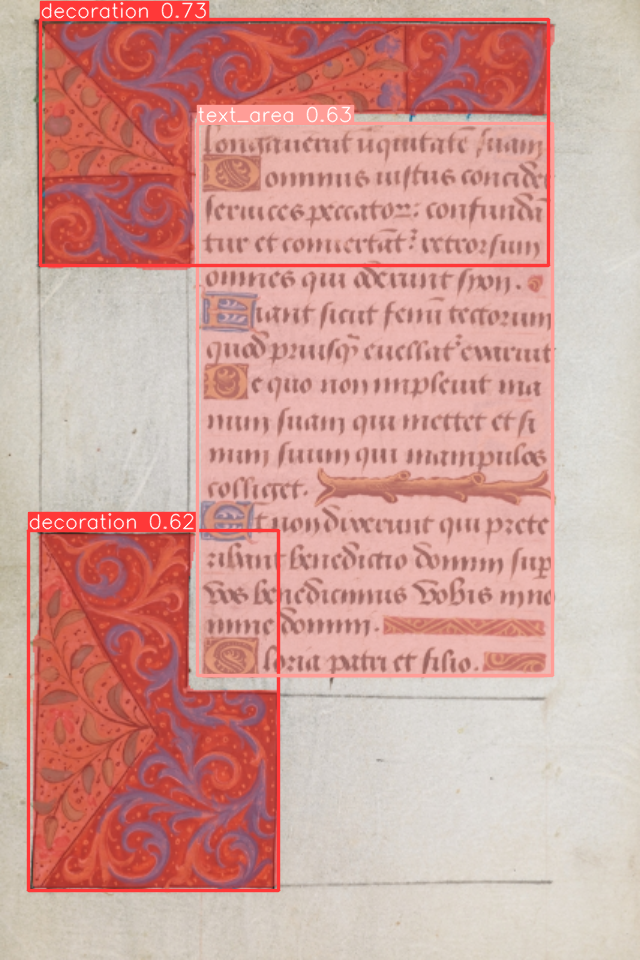 decoration 0.73
text_area 0.63
longauerūt iiquitatē suam
Dominus iustus concidet
seruices peccatoꝝ: confundā
tur et conuertāt᷒ retrorsum
omnes qui oderunt syon.
Fiant sicut fenū tectorum
quod priusqȝ euellat᷒ exaruit
De quo non impleuit ma
num suam qui mettet et si
num suum qui manipulos
colliget.
Et non dixerunt qui prete
ribant benedictio domini sup
vos benediximus vobis in no
mine domini.
decoration 0.62
Gloria patri et filio.